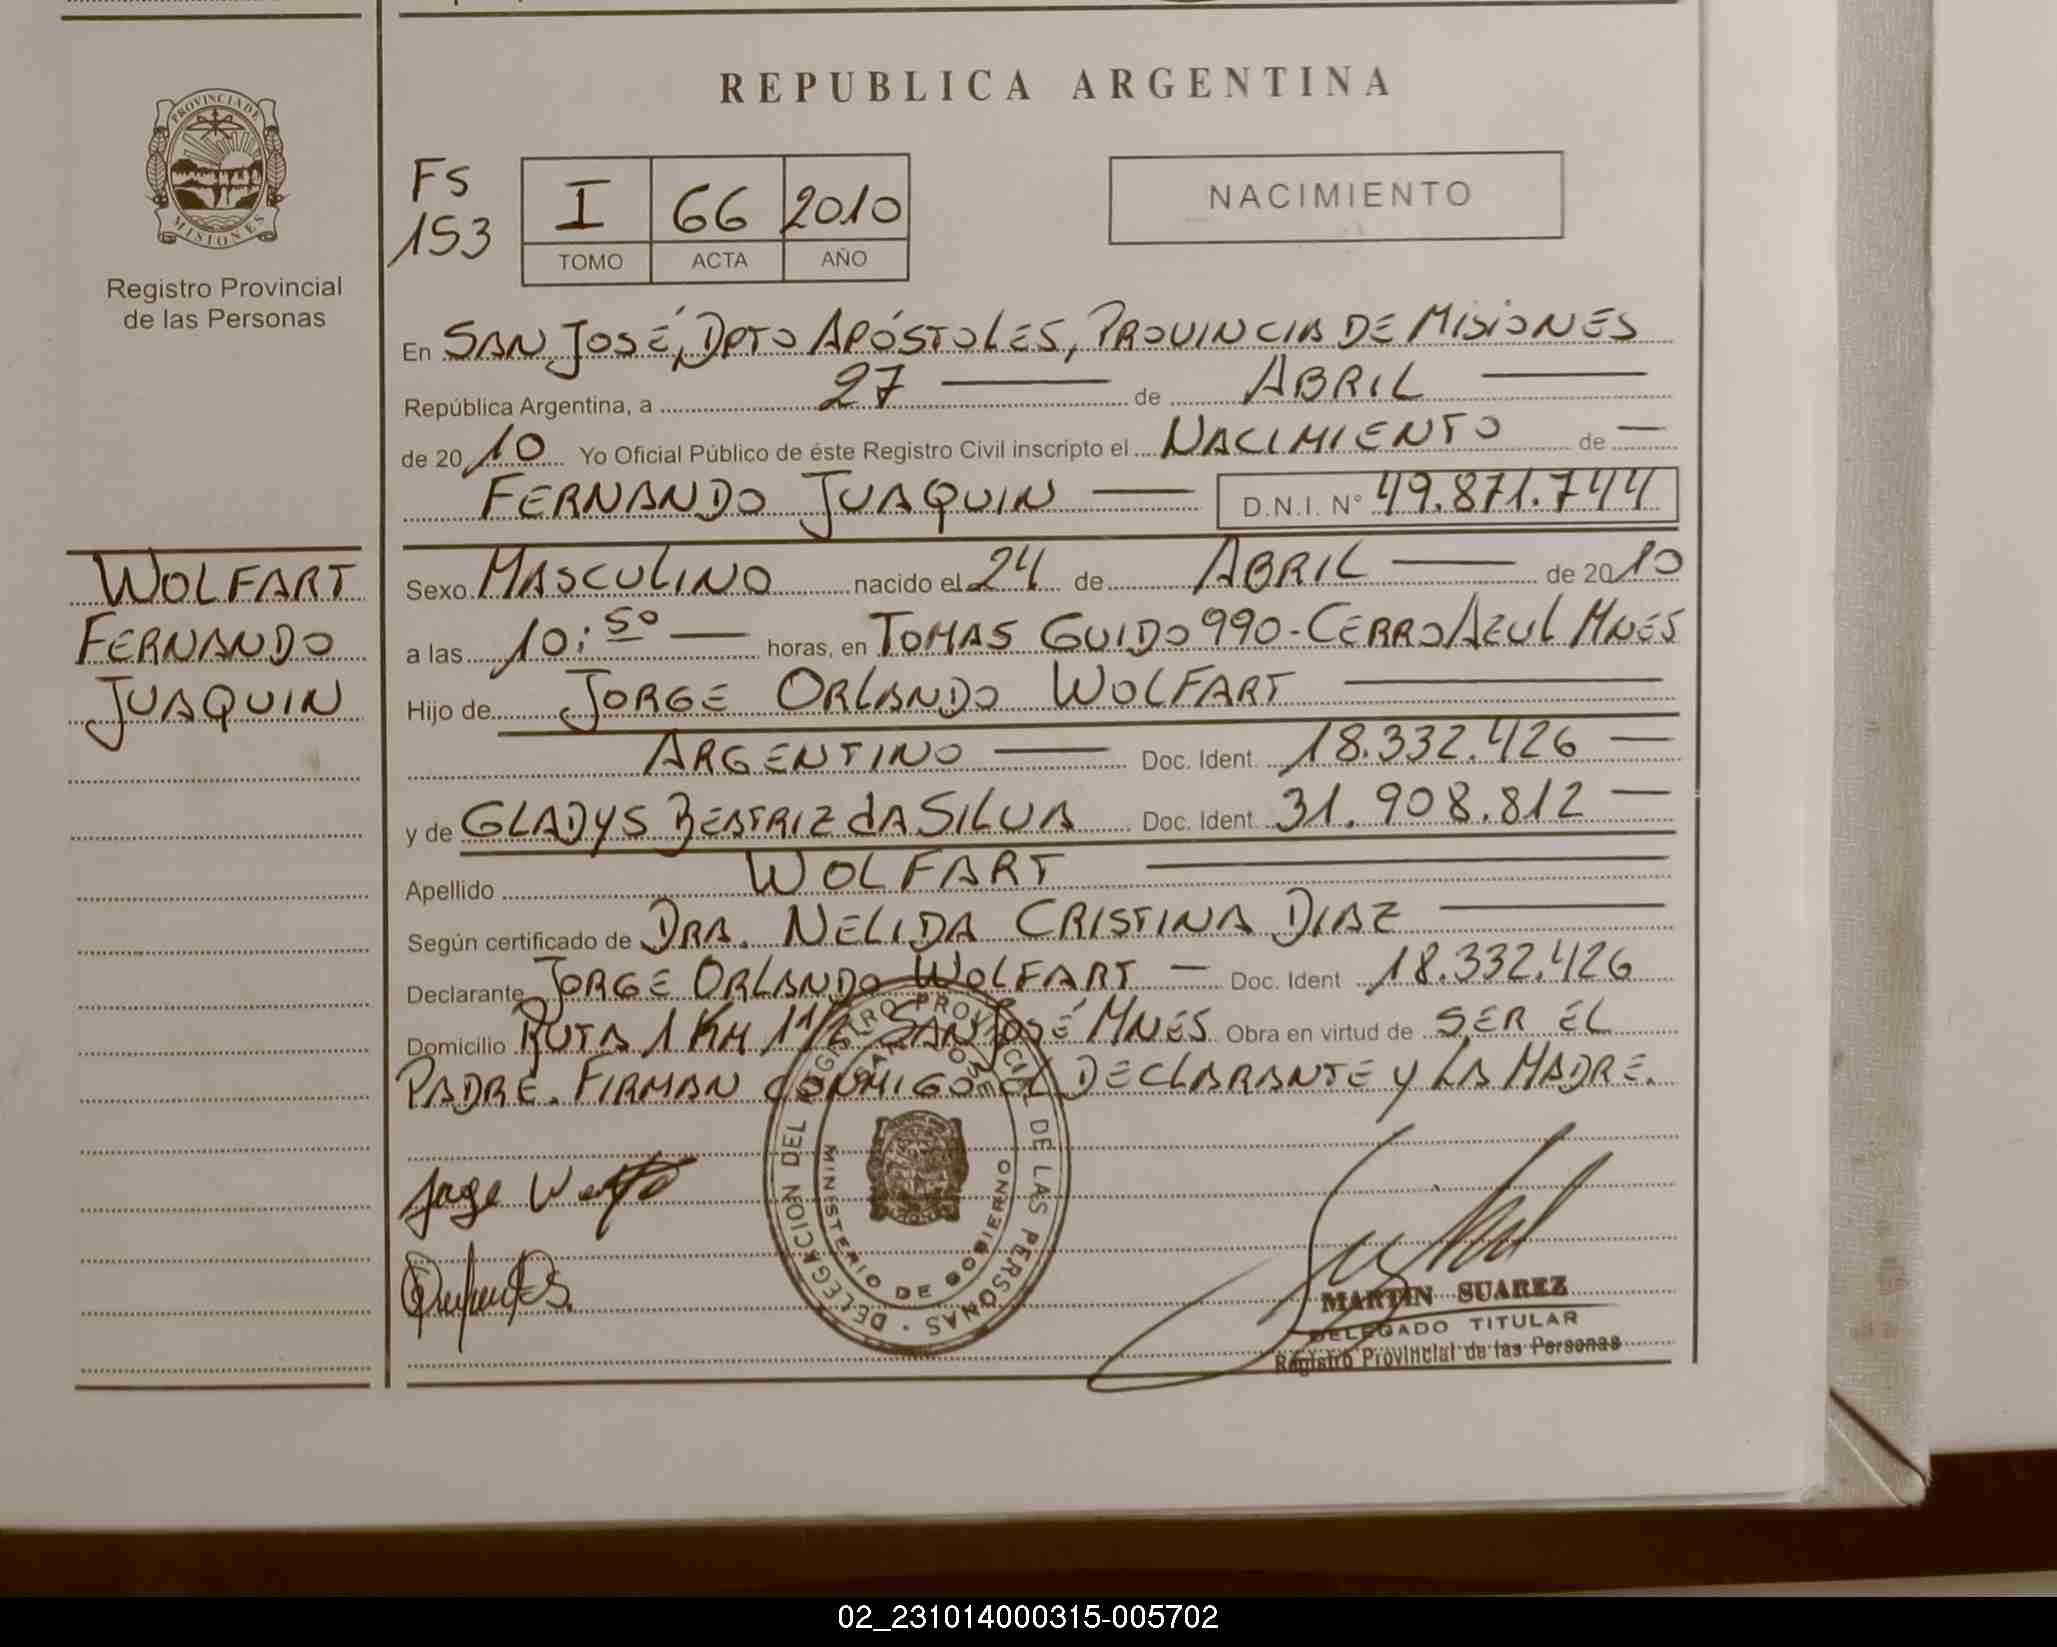 REPUBLICA ARGENTINA
PROVINCIA DE
MISIONES
Registro Provincial
de las Personas
FS
153
I 66 2010
TOMO ACTA AÑO
NACIMIENTO
En SAN JOSÉ, DPTO APÓSTOLES, PROVINCIA DE MISIONES
República Argentina, a 27 de ABRIL
de 2010 Yo Oficial Público de éste Registro Civil inscripto el NACIMIENTO de
FERNANDO JUAQUIN D.N.I. Nº 49.871.744
WOLFART
FERNANDO
JUAQUIN
Sexo MASCULINO nacido el 24 de ABRIL de 2010
a las 10:50 horas, en TOMAS GUIDO 990-CERRO AZUL MNES
Hijo de JORGE ORLANDO WOLFART
ARGENTINO Doc. Ident. 18.332.426
y de GLADYS BEATRIZ dA SILVA Doc. Ident. 31.908.812
Apellido WOLFART
Según certificado de DRA. NELIDA CRISTINA DIAZ
Declarante JORGE ORLANDO WOLFART Doc. Ident 18.332.426
Domicilio RUTA 1 KM SAN JOSÉ MNES Obra en virtud de SER EL
PADRE. FIRMAN CONMIGO EL DECLARANTE Y LA MADRE.
DELEGACION DEL REGISTRO PROVINCIAL DE LAS PERSONAS
SAN JOSE
MINISTERIO DE GOBIERNO
Jorge
MARTIN SUAREZ
DELEGADO TITULAR
Registro Provincial de las Personas
02_231014000315-005702